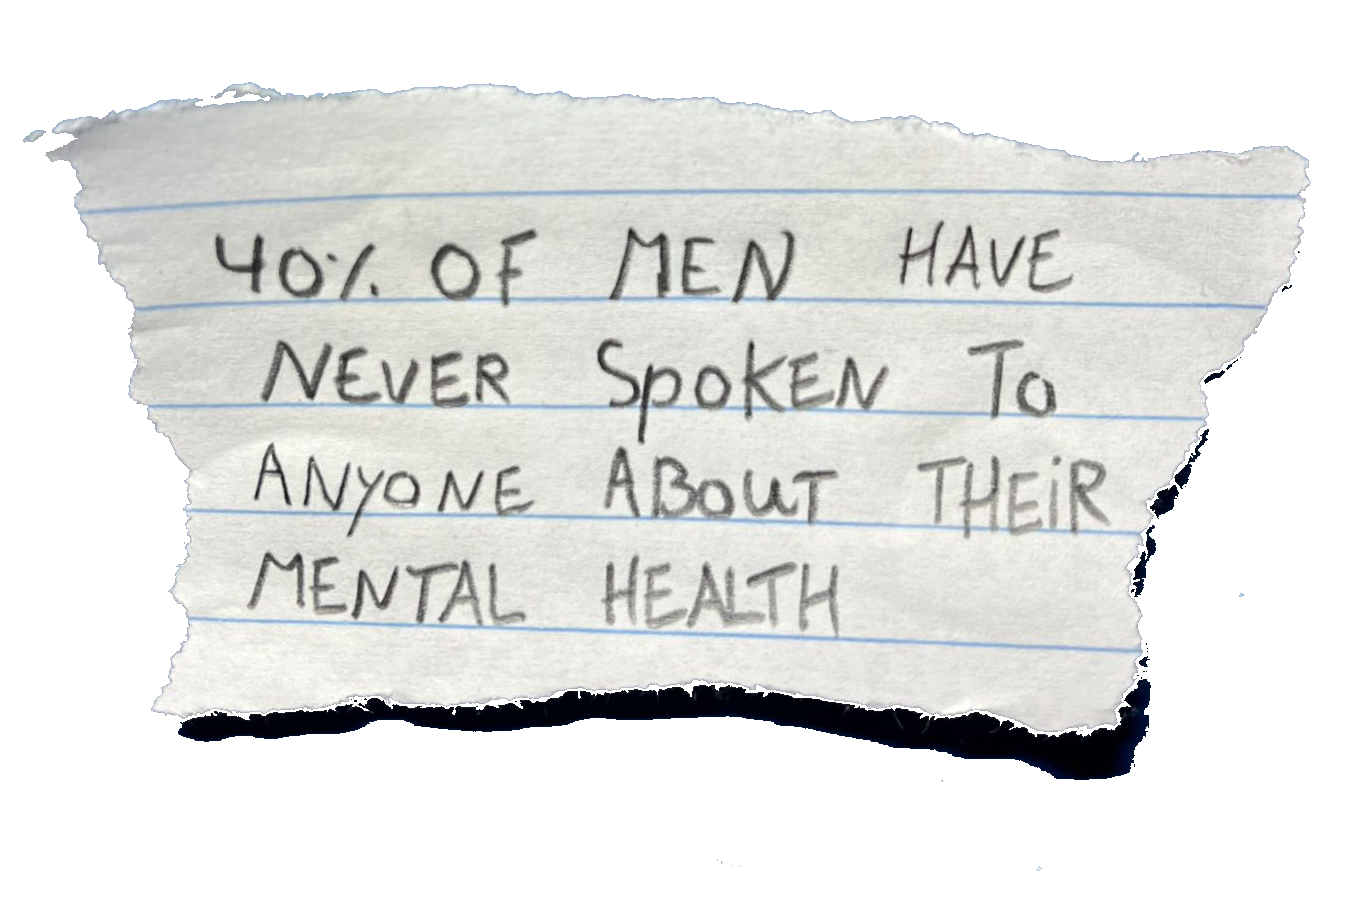 40% OF MEN HAVE
NEVER SpOKEN To
ANyONE ABouT THEiR
MENTAL HEALTH